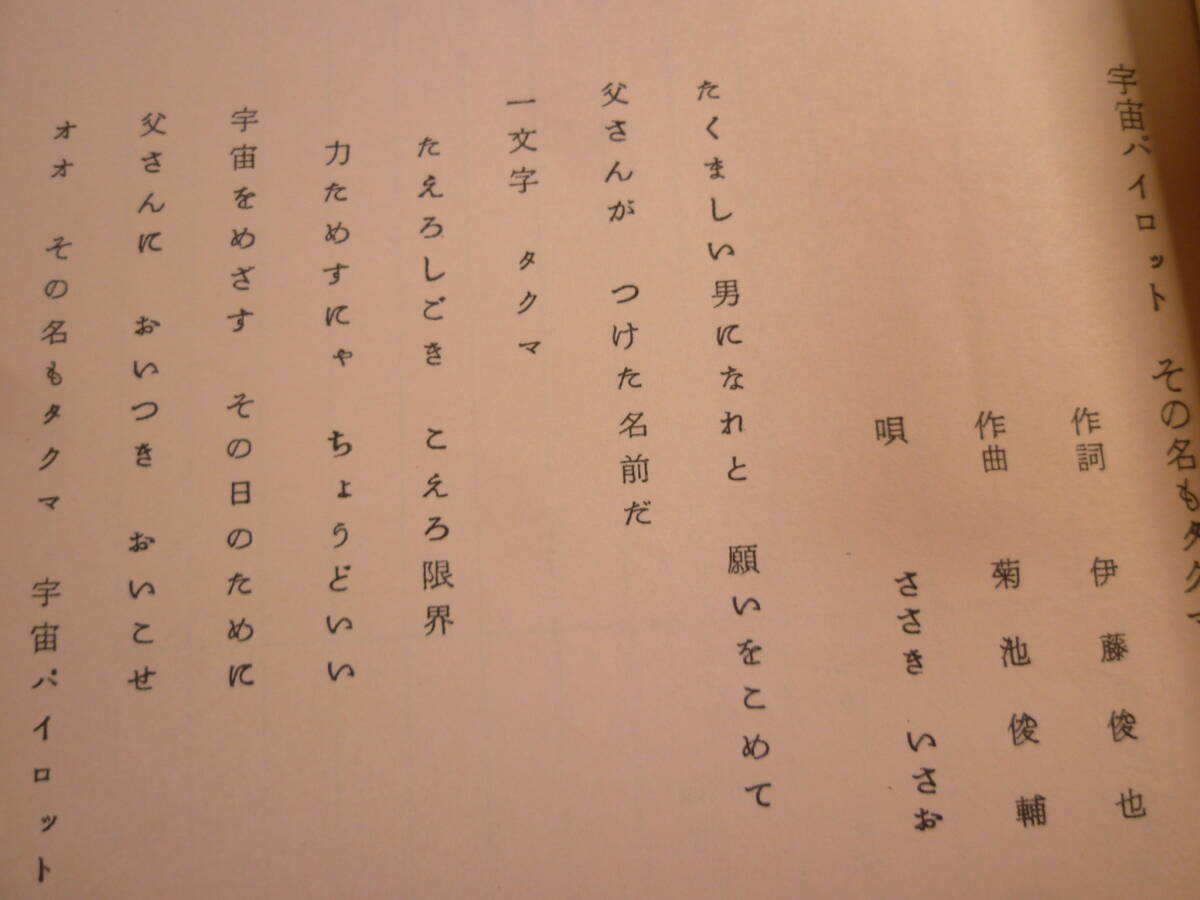 宇宙パイロット　その名もタクマ
作詞　伊藤俊也
作曲　菊池俊輔
唄　ささき　いさお
たくましい男になれと　願いをこめて
父さんが　つけた名前だ
一文字　タクマ
たえろしごき　こえろ限界
力ためすにゃ　ちょうどいい
宇宙をめざす　その日のために
父さんに　おいつき　おいこせ
オオ　その名もタクマ　宇宙パイロット